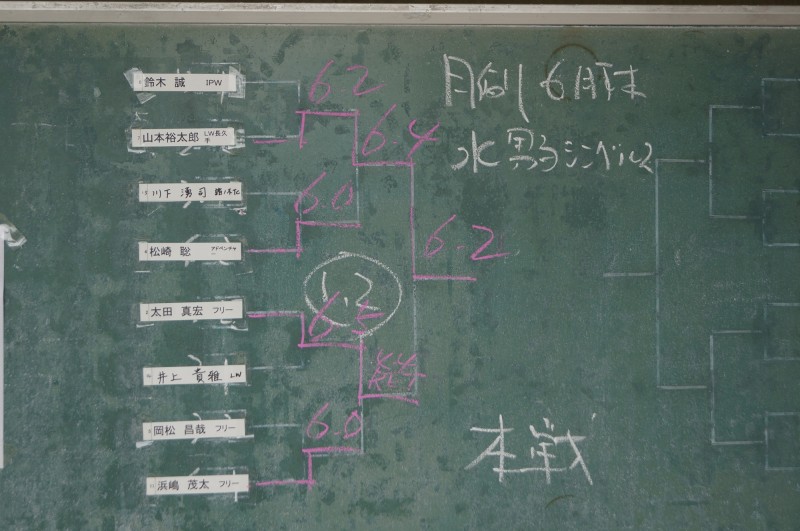 鈴木 誠 IPW
山本裕太郎 LW長久手
川下 湧司
松崎 聡 アドベンチャー
太田 真宏 フリー
井上 貴雅 LW
岡松 昌哉 フリー
浜嶋 茂太 フリー
6.2
6.4
6.0
6.2
1.2
6.5
6.0
6月
水 男子シングルス
本戦